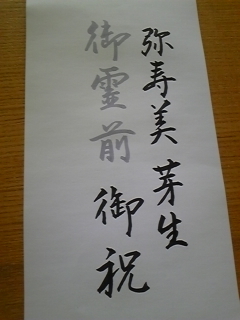 弥寿美 芽生
御霊前 御祝